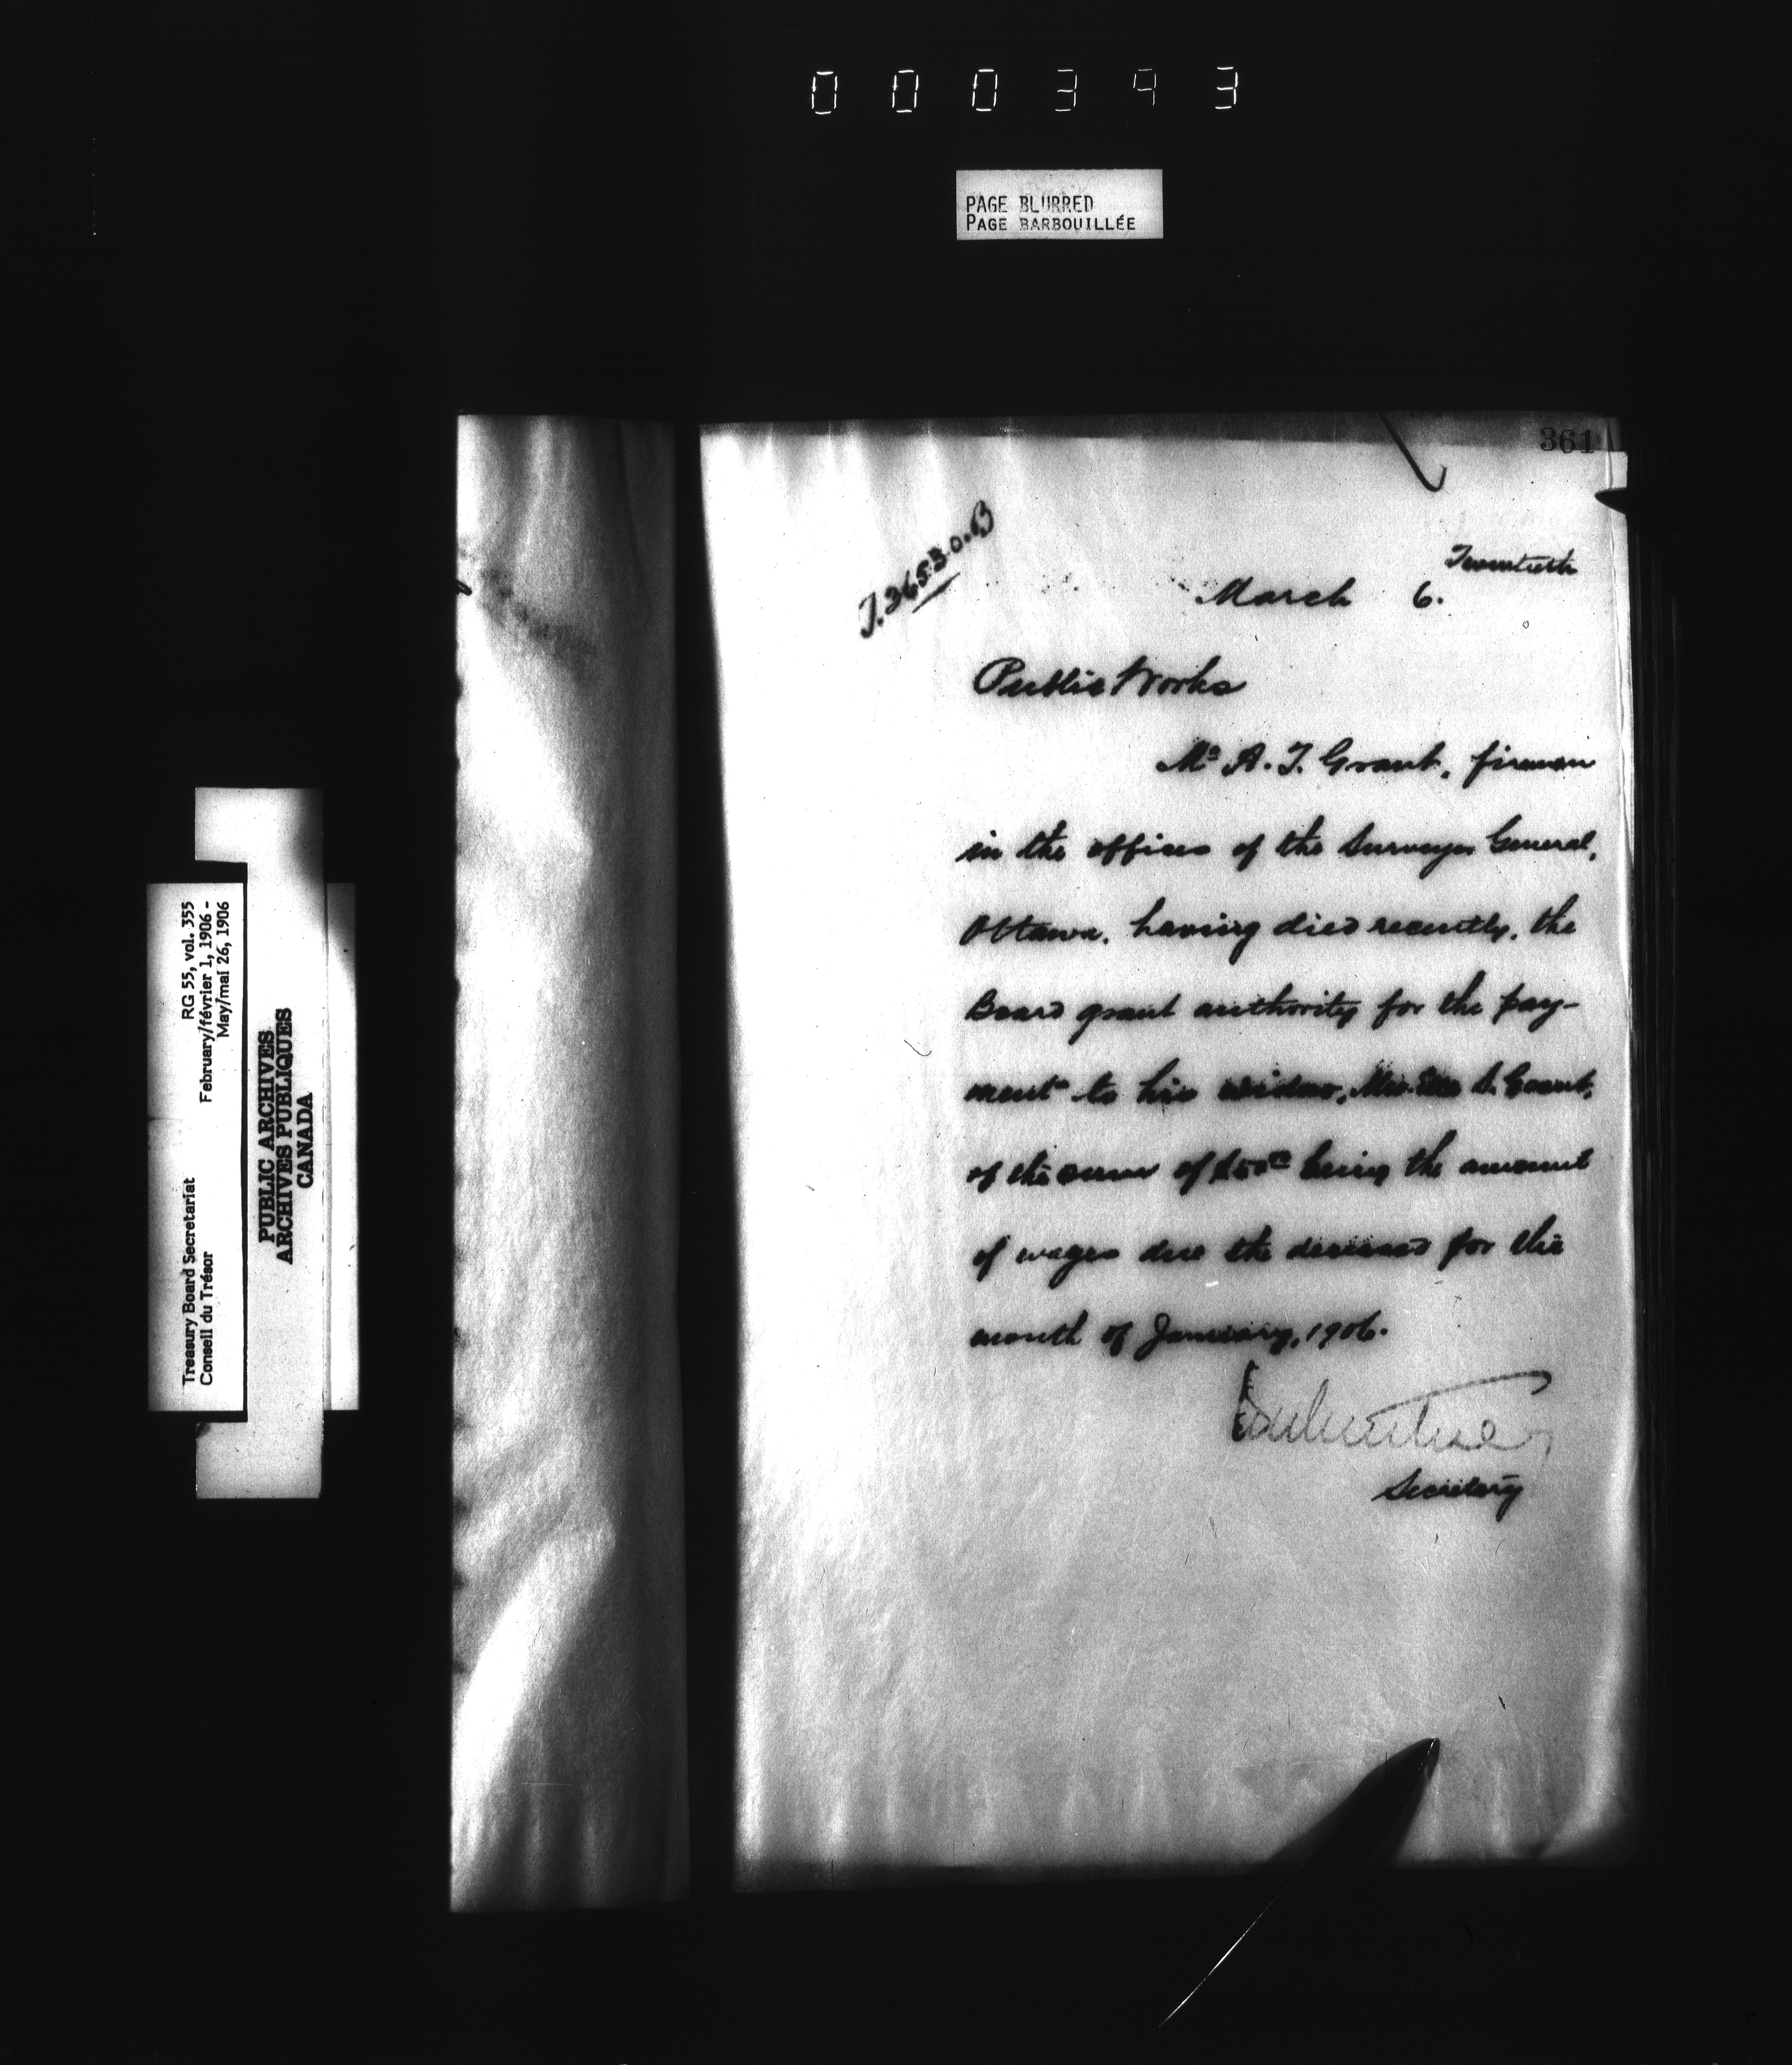 000343
PAGE BLURRED
PAGE BARBOUILLÉE
361
Twentieth
March 6.
Public Works
Mr A. T. Grant, fireman
in the offices of the Surveyor General,
Ottawa, having died recently, the
Board grant authority for the pay-
ment to his widow, Mrs. A. Grant,
of the sum of $50 being the amount
of wages due the deceased for the
month of January, 1906.
Secretary
Treasury Board Secretariat RG 55, vol. 355
Conseil du Trésor February/février 1, 1906 -
May/mai 26, 1906
PUBLIC ARCHIVES
ARCHIVES PUBLIQUES
CANADA